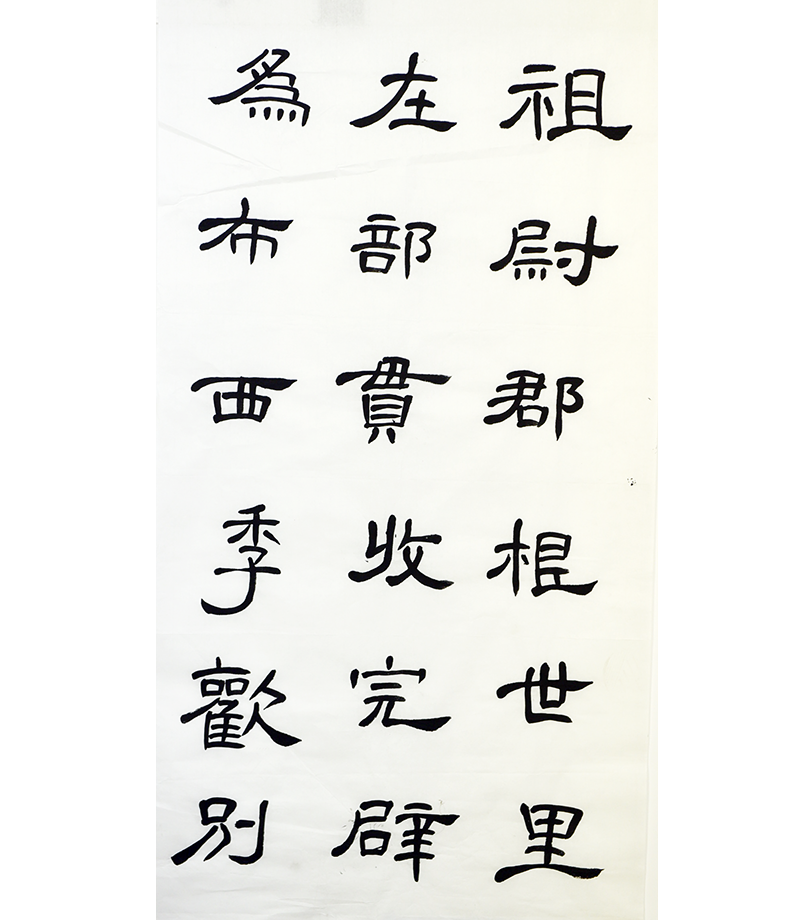 祖尉郡根世里
在部貫收完辟
為布西季歡別